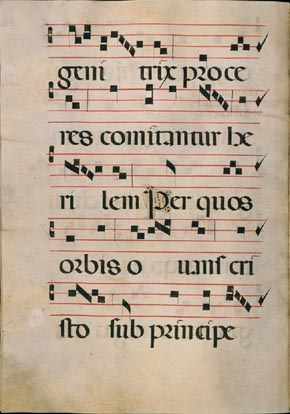 geni trix proce
res comitantur he
ri lem Per quos
orbis o uans cri
sto sub principe